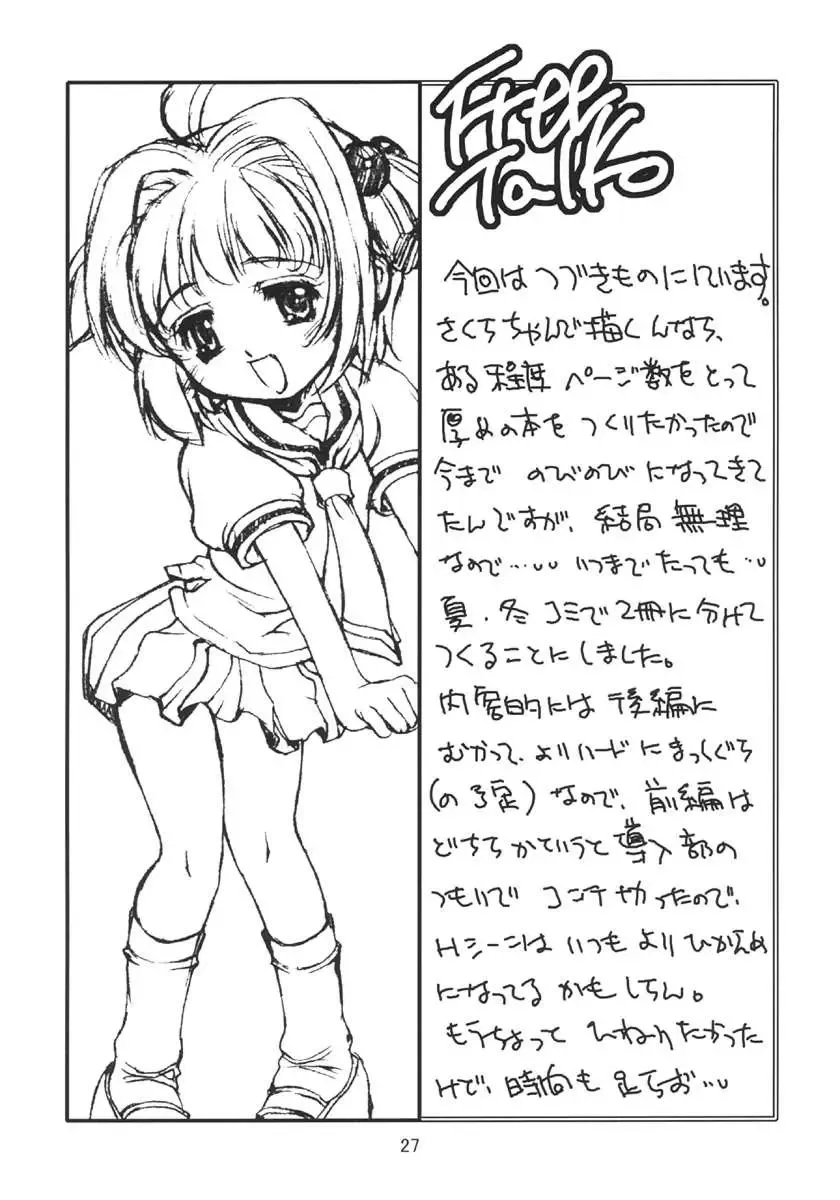 Free
Talk
今回はつづきものにしています。
さくらちゃんで描くんなら、
ある程度 ページ数をとって
厚めの本を つくりたかったので
今まで のびのび になってきて
たんですが、結局 無理
なので… いつまでたっても…
夏、冬 コミで2冊に分けて
つくることにしました。
内容的には 後編に
むかって、よりハードにまっしぐら
(の予定) なので、前編は
どちらかていうと 導入部の
つもりで コンテやったので、
Hシーンは いつも より ひかえめ
になってる かも しらん。
もうちょっと ひねりたかった
けど、時間も 足らお…
27